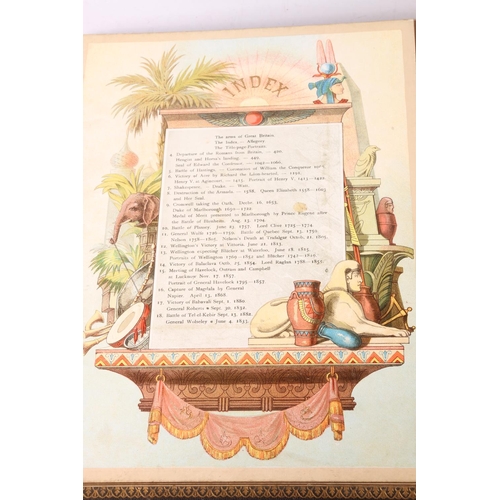 INDEX
The arms of Great Britain.
The Index — Allegory
The Title-page Portraits
Departure of the Romans from Britain. — 420.
Hengist and Horsa's landing — 449.
Seal of Edward the Confessor. — 1042–1066.
2. Battle of Hastings. — Coronation of William the Conqueror 1066
3. Victory of Acre by Richard the Lion-hearted — 1191.
4. Henry V at Agincourt. — 1415. Portrait of Henry V, 1413–1422.
5. Shakespeare. Drake. — West.
6. Destruction of the Armada. — 1588. Queen Elizabeth 1558–1603
and Her Seal.
8. Cromwell taking the Oath, Decbr. 16, 1653.
Duke of Marlborough 1650–1722.
Medal of Mem: presented to Marlborough by Prince Eugene after
the Battle of Hochstedt. Aug. 13. 1704.
10. Battle of Plassey. June 23. 1757. Lord Clive 1725–1774.
11. General Wolfe 1726–1759. Battle of Quebec Sept. 13. 1759.
Nelson 1758–1805. Nelson's Death at Trafalgar Octob. 21. 1805.
12. Wellington's Victory at Vittoria. June 21. 1813.
13. Wellington expecting Blücher at Waterloo. June 18. 1815.
Portraits of Wellington 1769–1852 and Blücher 1742–1819
14. Victory of Balaclava Octb. 25. 1854. Lord Raglan 1788–1855.
15. Meeting of Havelock, Outram and Campbell
in Lucknow Nov. 17. 1857
Portrait of General Havelock 1795–1857
16. Capture of Magdala by General
Napier. April 13. 1868.
17. Victory of Baba-wali Sept. 1. 1880
General Roberts * Sept. 30. 1832.
18. Battle of Tel-el-Kebir Sept. 13. 1882
General Wolseley * June 4. 1833.